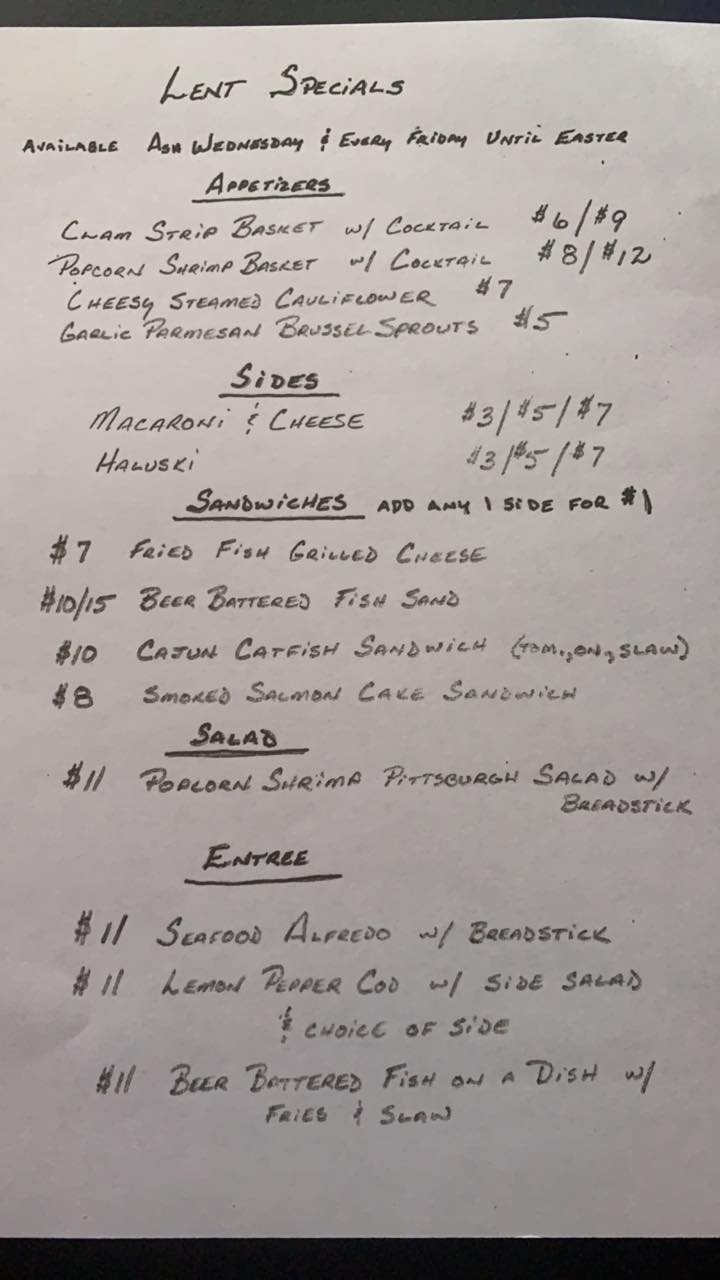 LENT SPECIALS
AVAILABLE ASH WEDNESDAY & EVERY FRIDAY UNTIL EASTER
APPETIZERS
CLAM STRIP BASKET w/ COCKTAIL $6/$9
POPCORN SHRIMP BASKET w/ COCKTAIL $8/$12
CHEESY STEAMED CAULIFLOWER $7
GARLIC PARMESAN BRUSSEL SPROUTS $5
SIDES
MACARONI & CHEESE $3/$5/$7
HALUSKI $3/$5/$7
SANDWICHES ADD ANY 1 SIDE FOR $1
$7 FRIED FISH GRILLED CHEESE
$10/15 BEER BATTERED FISH SAND
$10 CAJUN CATFISH SANDWICH (TOM., ON., SLAW)
$8 SMOKED SALMON CAKE SANDWICH
SALAD
$11 POPCORN SHRIMP PITTSBURGH SALAD w/
BREADSTICK
ENTREE
$11 SEAFOOD ALFREDO w/ BREADSTICK
$11 LEMON PEPPER COD w/ SIDE SALAD
& CHOICE OF SIDE
$11 BEER BATTERED FISH ON A DISH w/
FRIES & SLAW